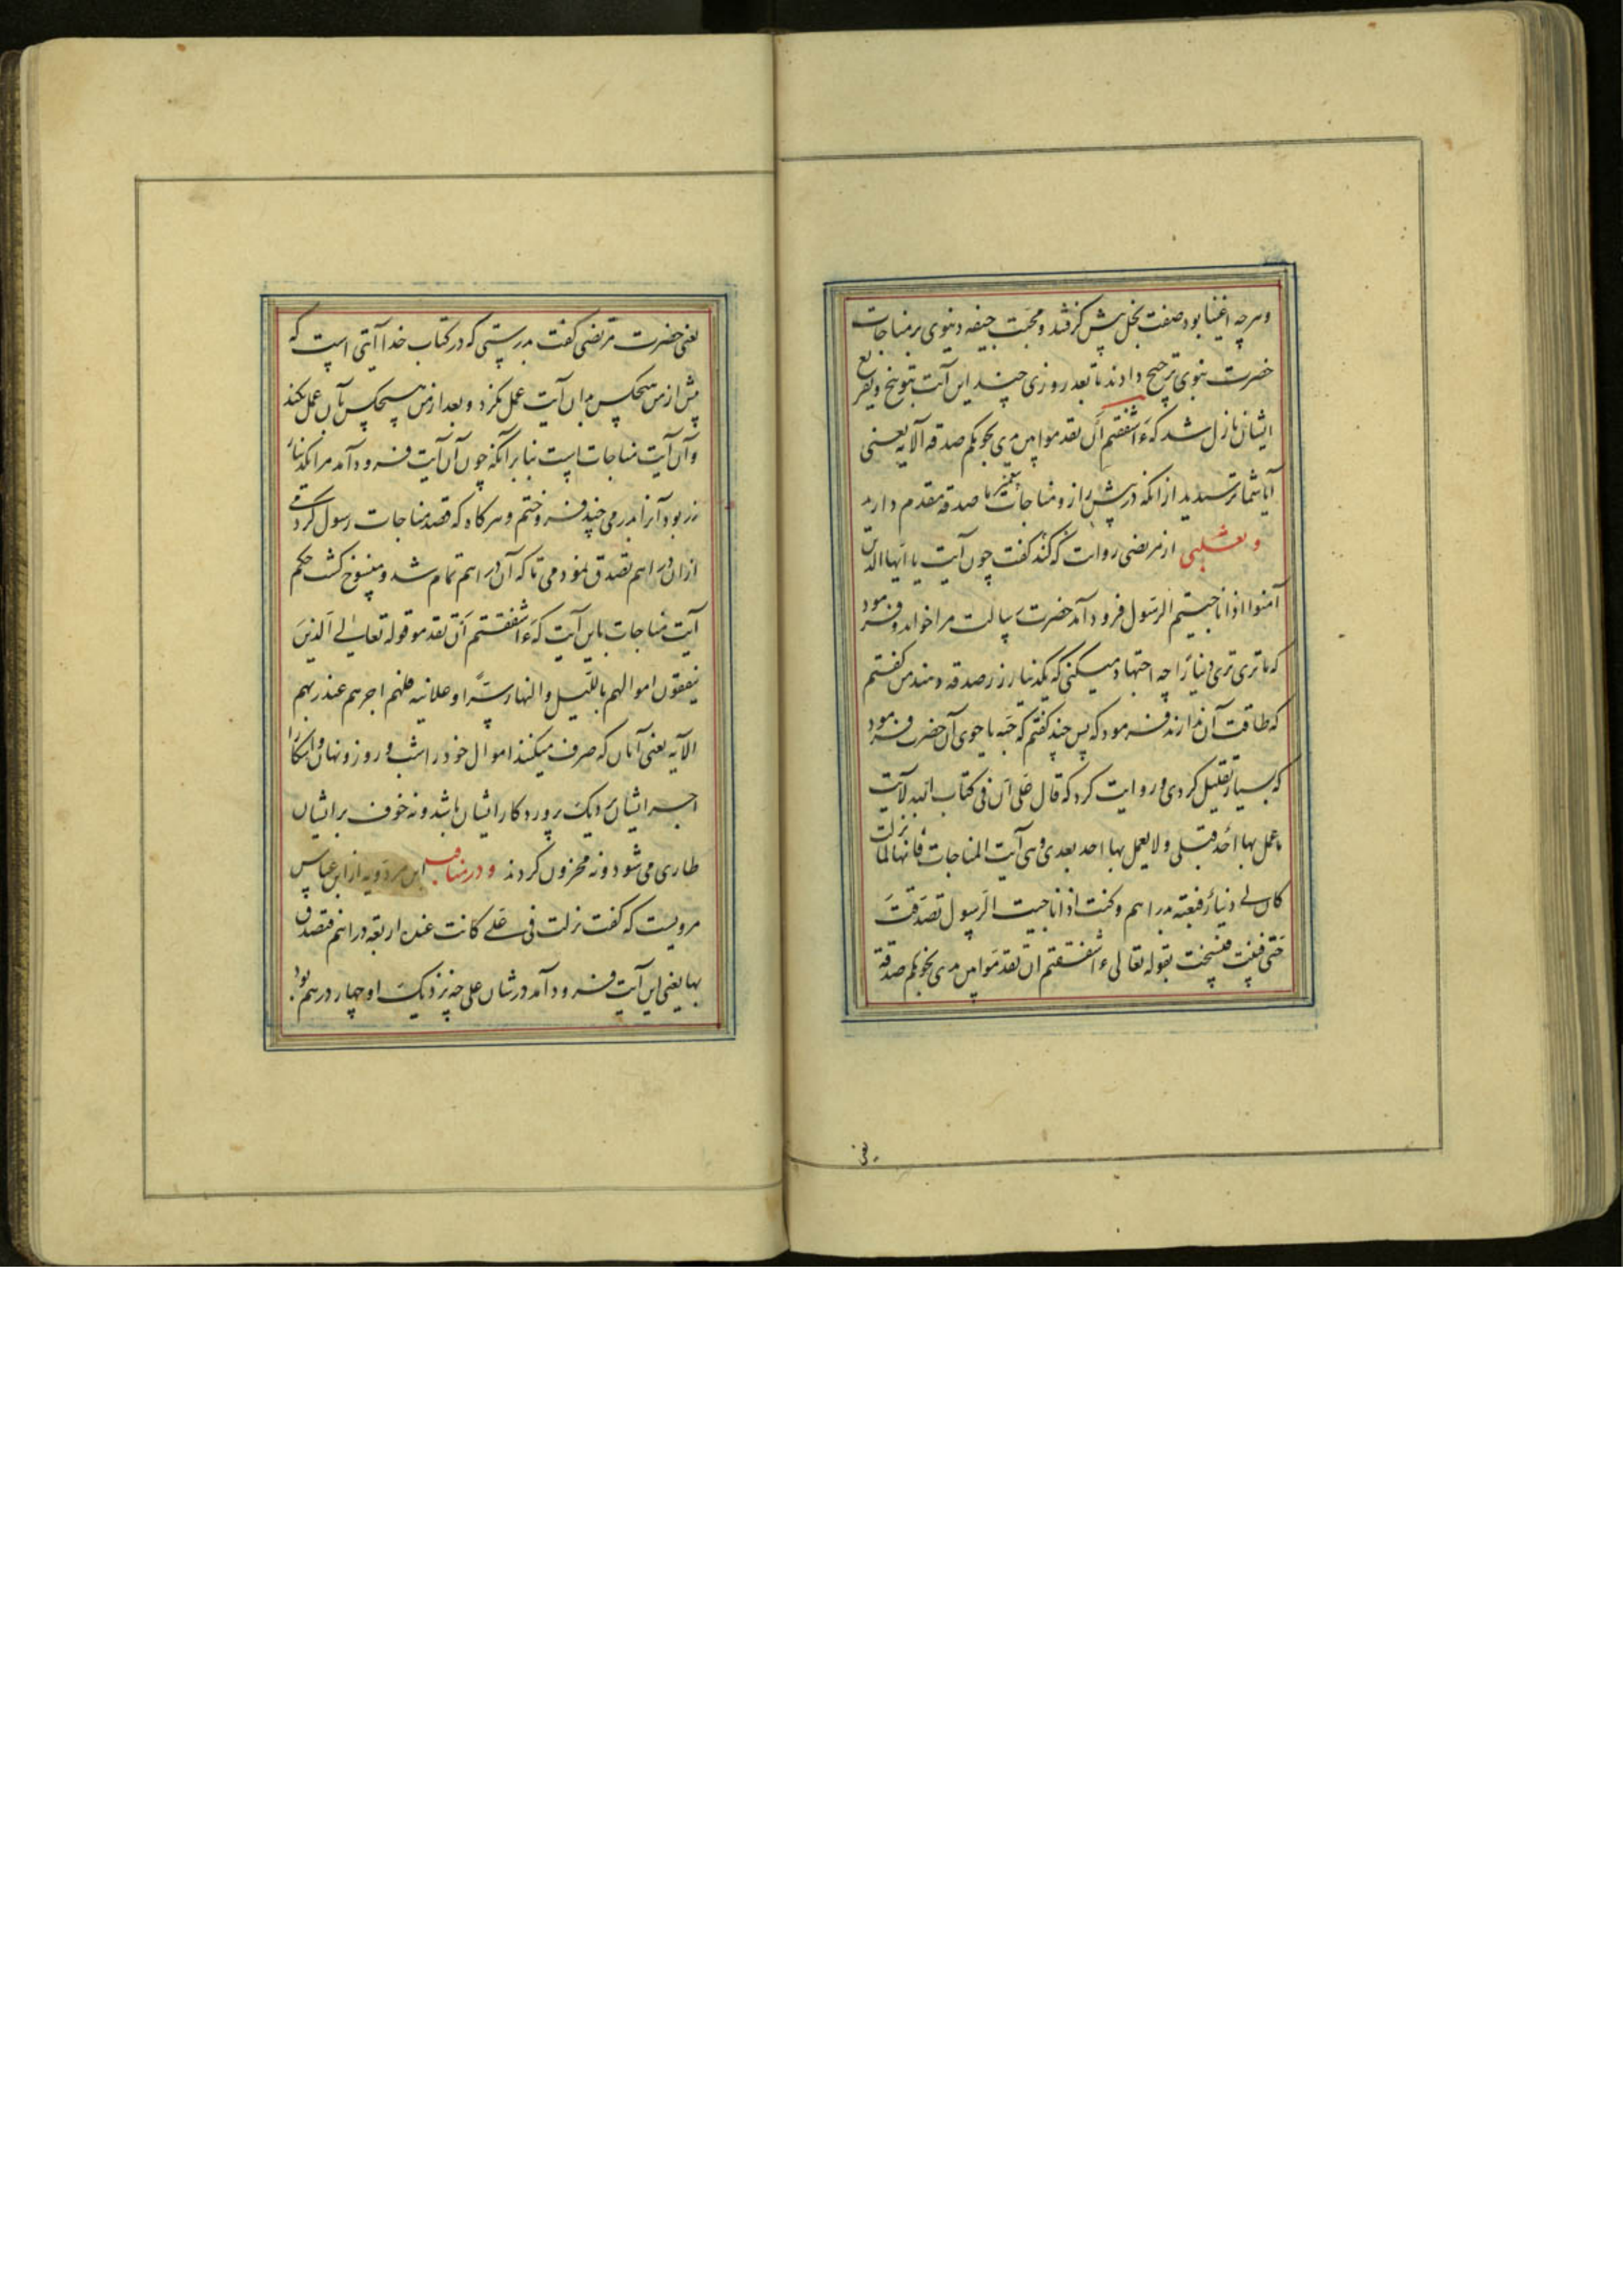 وهرچه اغنیا بود صفت بخل پیش گرفتند و محبت جیفه دنیوی بر مناجات
حضرت نبوی ترجیح دادند تا بعد روزی چند این آیت بتوبیخ و تقریع
ایشان نازل شد که ءَاشفقتم ان تقدموا بین یدی نجویکم صدقه الآیه یعنی
آیا شما ترسیدید از انکه در پیش راز و مناجات پیغمبر ما صدقه مقدم دارید
و ثعلبی از مرتضی روایت کند که گفت چون آیت یا ایها الذین
آمنوا اذا ناجیتم الرسول فرود آمد حضرت رسالت مرا خواند و فرمود
که ما تری تری دینارا چه اجتهاد میکنی که یکدینار زر صدقه دهند من گفتم
که طاقت آن ندارند فرمود که پس چند گفتم که حبه یا جوی آن حضرت فرمود
که بسیار تقلیل کردی و روایت کرد که قال علی ان فی کتاب الله لآیت
ما عمل بها احد قبلی ولا یعمل بها احد بعدی وهی آیت المناجات فانها لما نزلت
کان لی دینار فبعته بدراهم وکنت اذا ناجیت الرسول تصدقت
حتی فنیت فنسخت بقوله تعالی ءاشفقتم ان تقدموا بین یدی نجویکم صدقة
یعنی
یعنی حضرت مرتضی گفت بدرستی که در کتاب خدا آیتی است که
پیش از من هیچکس بدان آیت عمل نکرد و بعد از من هیچکس بآن عمل نکند
و آن آیت مناجات است بنا بر آنکه چون آن آیت فرود آمد مرا یکدینار
زر بود آنرا بدرمی چند فروختم و هرگاه که قصد مناجات رسول کردمی
ازان دراهم تصدق نمودمی تا که آن دراهم تمام شد و منسوخ گشت حکم
آیت مناجات باین آیت که ءَاشفقتم ان تقدموا قوله تعالی الذین
ینفقون اموالهم باللیل والنهار سرًّا وعلانیه فلهم اجرهم عند ربهم
الآیه یعنی آنان که صرف میکنند اموال خود را شب و روز و نهان و آشکارا
اجر ایشان نزدیک پروردگار ایشان باشد و نه خوف بر ایشان
طاری می شود و نه محزون گردند و در مناقب ابن مردویه از ابن عباس
مرویست که گفت نزلت فی علی کانت عنده اربعة دراهم فتصدق
بها یعنی این آیت فرود آمد در شان علی چه نزدیک او چهار درهم بود